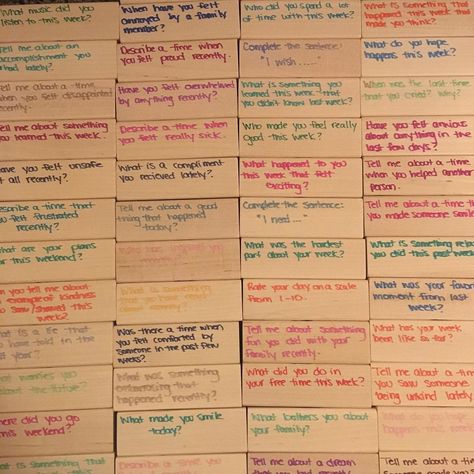 What music did you
listen to this week?
When have you felt
annoyed by a family
member?
Who did you spend a lot
of time with this week?
What is something that
happened this week that
made you think?
Tell me about an
accomplishment you
had lately?
Describe a time when
you felt proud recently.
Complete the Sentence:
"I wish ....."
What do you hope
happens this week?
Tell me about a time
when you felt disappointed
recently.
Have you felt overwhelmed
by anything recently?
What is something you
learned this week that
you didn't know last week?
When was the last time
that you cried? Why?
Tell me about something
you learned this week.
Describe a time when
you felt really sick.
Who made you feel really
good this week?
Have you felt anxious
about anything in the
last few days?
Have you felt unsafe
at all recently?
What is a compliment
you recieved lately?
What happened to you
this week that felt
exciting?
Tell me about a time
when you helped another
person.
Describe a time that
you felt frustrated
recently?
Tell me about a good
thing that happened
today?
Complete the Sentence:
"I need ..."
Tell me about a time
you made someone smile
What are your plans
for this weekend?
What was the hardest
part about your week?
What is something
you did this past week
Can you tell me about
example of kindness
you saw/showed this
week?
What is something
Rate your day on a scale
from 1-10.
What was your
moment from last
week?
What is a lie that
you have told in the
Was there a time when
you felt comforted by
someone in the past few
weeks?
Tell me about something
fun you did with your
family recently.
What has your week
been like so far?
What worries you
about the future?
What was something
embarrassing that
happened recently?
What did you do in
your free time this week?
Tell me about a time
you saw someone
being unkind lately
Where did you go
this weekend?
What made you smile
today?
What bothers you about
your family?
What is something that
Describe a time
Tell me about a dream
Tell me about a time